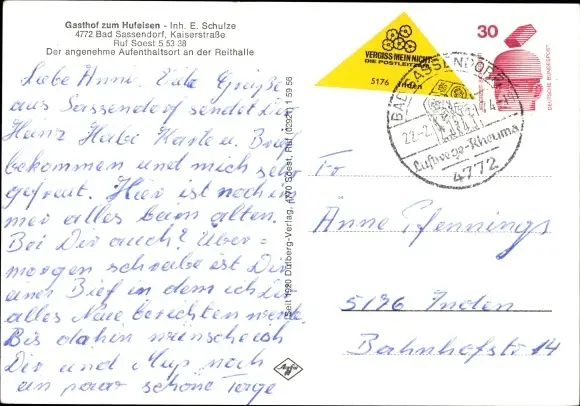 Gasthof zum Hufeisen - Inh. E. Schulze
4772 Bad Sassendorf, Kaiserstraße
Ruf Soest 5 53 38
Der angenehme Aufenthaltsort an der Reithalle
Liebe Änni. Viele Grüße
aus Sassendorf sendet Dir
Heinz Habe Karte u. Brief
bekommen und mich sehr
gefreut. Hier ist noch im
mer alles beim alten.
Bei Dir auch? Über=
morgen schreibe ist Dir
einen Bief in dem ich Dir
alles Neue berichten werde.
Bis dahin wünsche ich
Dir und noch
ein paar schöne Tage
Seit 1920 Dülberg-Verlag, 4770 Soest, Ruf (02921) 1 59 56
Agfa
VERGISS MEIN NICHT
DIE POSTLEITZAHL
5176 Inden
30
DEUTSCHE BUNDESPOST
BAD SASSENDORF
22-2
Luftwege-Rheuma
4772
Fr
Änne Pfennings
5196 Inden
Bahnhofstr 14